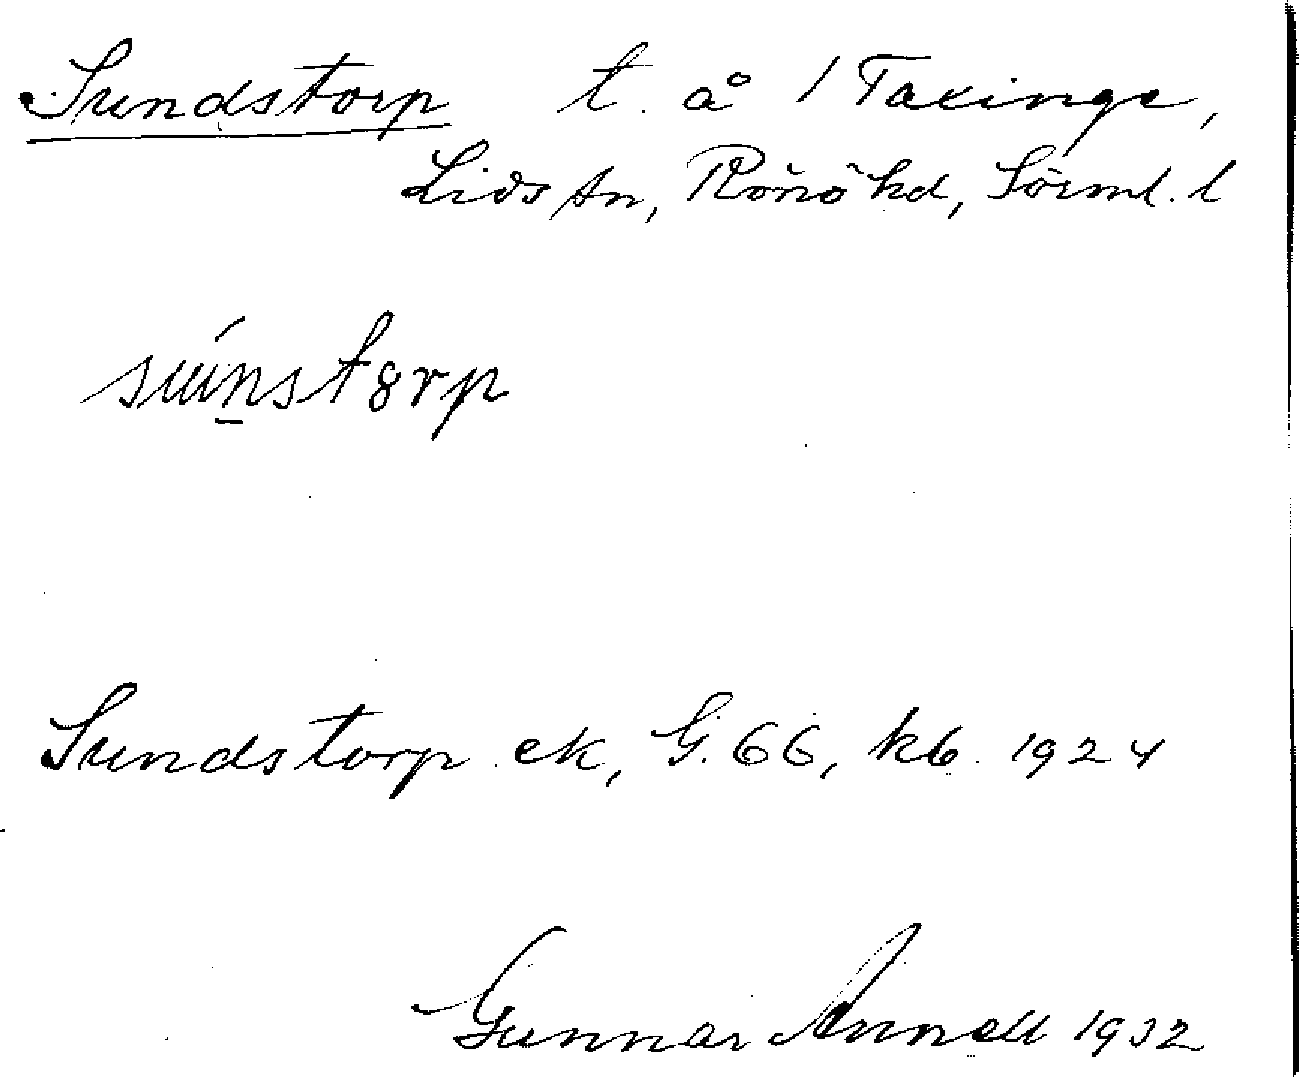 Sundstorp t. å / Taxinge,
Lids sn, Rönö hd, Sörml. l
súnstorp
Sundstorp ek, G. 66, kb. 1924
Gunnar Annell 1932